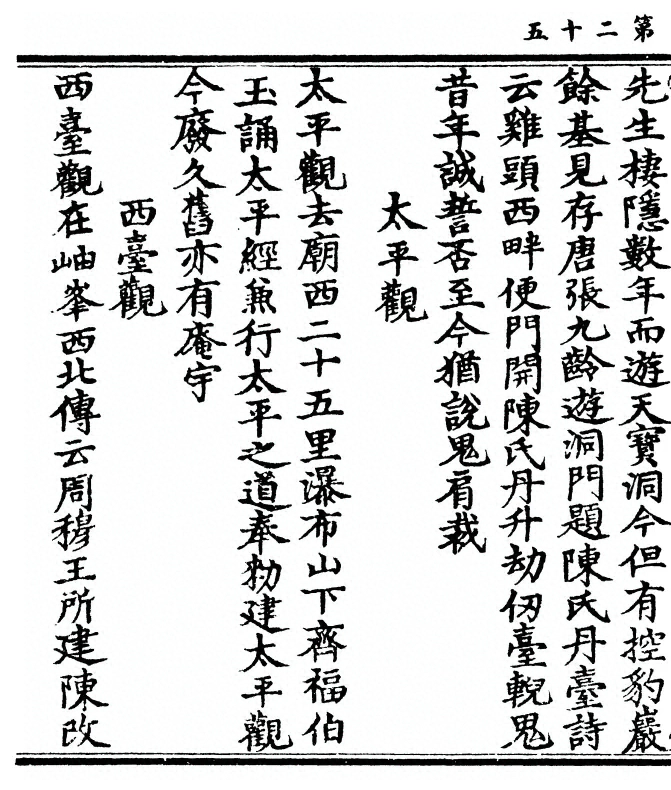 第二十五
先生棲隱數年而遊天寶洞今但有控豹巖
餘基見存唐張九齡遊洞門題陳氏丹臺詩
云雞頭西畔便門開陳氏丹升劫仞臺輗鬼
昔年誠誓否至今猶說鬼肩栽
太平觀
太平觀去廟西二十五里瀑布山下齊福伯
玉誦太平經兼行太平之道奉勑建太平觀
今廢久舊亦有庵宇
西臺觀
西臺觀在岫峯西北傳云周穆王所建陳改